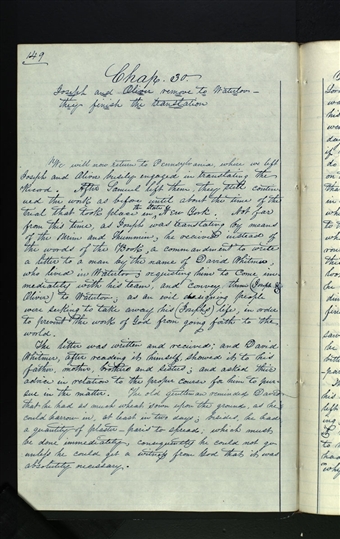 149
Chap. 30.
Joseph and Oliver remove to Waterloo—
they finish the translation
We will now return to Pennsylvania where we left
Joseph and Oliver busily engaged in translating the
Record. After Samuel left them, they still contin
ued the work as before until about the time of the
trial that took place in the State of New York. Not far
from this time, as Joseph was translating by means
of the Urim and Thummim, he received instead of
the words of the Book, a commandment to write
a letter to a man by the name of David Whitmer,
who lived in Waterloo; requesting him to come im
mediately with his team, and convey them (Joseph &
Oliver) to Waterloo; as an evil designing people
were seeking to take away his (Joseph's) life, in order
to prevent the work of God from going forth to the
world.
The letter was written and received; and David
Whitmer, after reading it himself, showed it to his
father, mother, brothers and sisters; and asked their
advice in relation to the proper course for him to pur
sue in the matter. The old gentleman reminded David
that he had as much wheat sown upon the ground, as he
could harrow in, at least in two days; besides, he had
a quantity of plaster-paris to spread, which must
be done immediately, consequently he could not go
unless he could get a witness from God that it was
absolutely necessary.